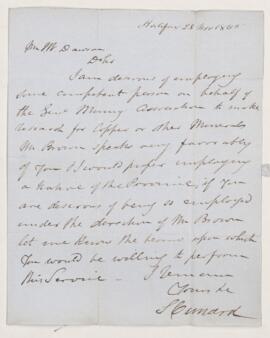 Halifax 28 Nov 184
Mr Wm Dawson
D Sir
I am desirous of employing
some competent person on behalf of
the Genl Mining Association to make
research for Copper or other Minerals
Mr Brown speaks very favorably
of you & I would prefer employing
a native of the Province, if you
are desirous of being so employed
under the direction of Mr Brown
let me know the terms upon which
you would be willing to perform
this Service — I remain
Yours &c
S Cunard